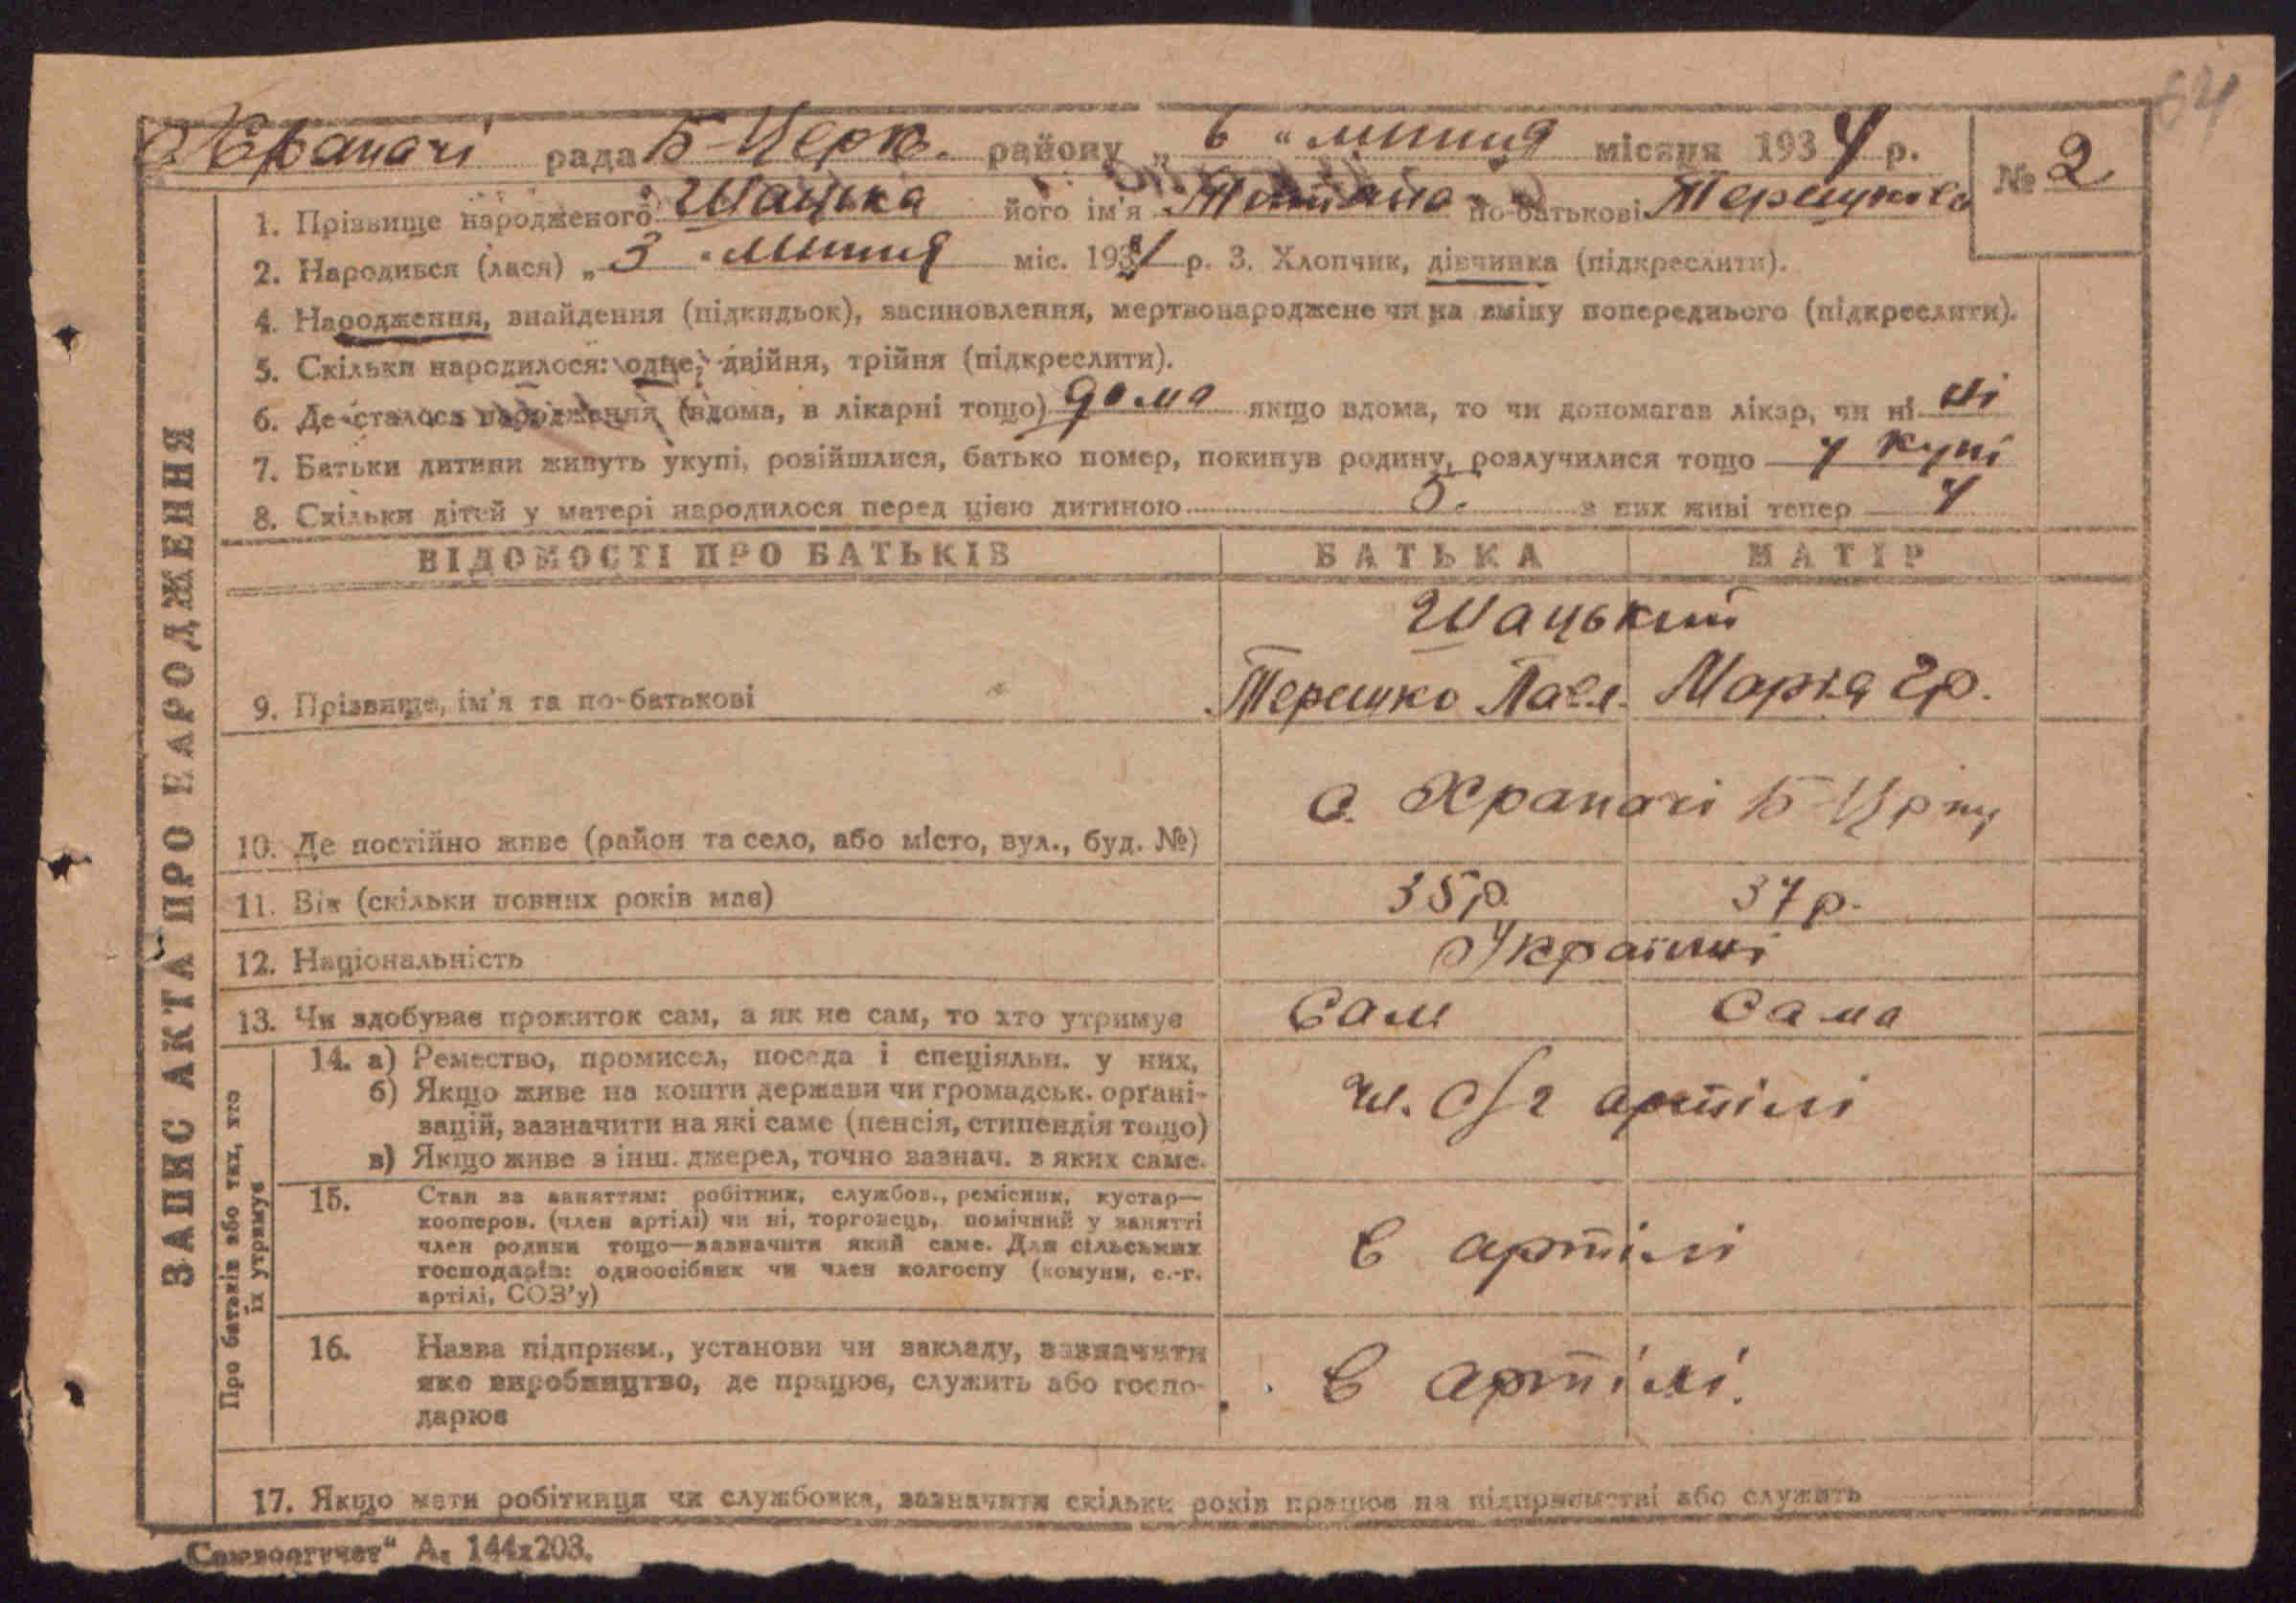 64
с. Храпачі рада Б-Церк. району „ 6 " липня місяця 1934 р. № 2
1. Прізвище народженого Шацька його ім'я Тетяна по-батькові Терешкова
2. Народився (лася) „ 3 " липня міс. 1934 р. 3. Хлопчик, дівчинка (підкреслити).
4. Народження, знайдення (підкидьок), засиновлення, мертвонароджене чи на зміну попереднього (підкреслити).
5. Скільки народилося: одне, двійня, трійня (підкреслити).
6. Де сталося народження (вдома, в лікарні тощо) дома якщо вдома, то чи допомагав лікар, чи ні ні
7. Батьки дитини живуть укупі, розійшлися, батько помер, покинув родину, розлучилися тощо у купі
8. Скільки дітей у матері народилося перед цією дитиною 5. з них живі тепер 4
ЗАПИС АКТА ПРО НАРОДЖЕННЯ
ВІДОМОСТІ ПРО БАТЬКІВ БАТЬКА МАТІР
Шацький
9. Прізвище, ім'я та по-батькові Терешко Павл. Марія Гр.
10. Де постійно живе (район та село, або місто, вул., буд. №) с. Храпачі Б-Ц р ну
11. Вік (скільки повних років має) 35 р. 37 р.
12. Національність Українці
13. Чи здобуває прожиток сам, а як не сам, то хто утримує Сам Сама
Про батьків або тих, хто їх утримує
14. а) Ремество, промисел, посада і спеціяльн. у них,
б) Якщо живе на кошти держави чи громадськ. організацій, зазначити на які саме (пенсія, стипендія тощо)
в) Якщо живе з інш. джерел, точно зазнач. з яких саме.
чл. с/г артілі
15. Стан за заняттям: робітник, службов., ремісник, кустар—
кооперов. (член артілі) чи ні, торговець, помічний у занятті
член родини тощо—зазначити який саме. Для сільських
господарів: одноосібник чи член колгоспу (комуни, с.-г.
артілі, СОЗ'у)
в артілі
16. Назва підприєм., установи чи закладу, зазначити
яке виробництво, де працює, служить або господарює
в артілі.
17. Якщо мати робітниця чи службовка, зазначити скільки років працює на підприємстві або служить
А₄ 144х203.